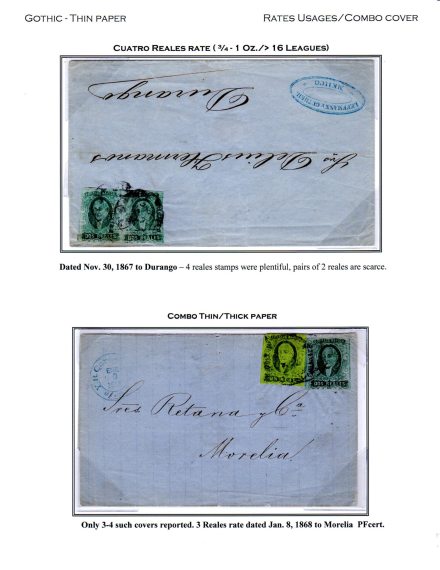 GOTHIC - THIN PAPER
RATES USAGES/COMBO COVER
CUATRO REALES RATE ( ¾ - 1 OZ./> 16 LEAGUES)
MEXICO
Durango
Sres Delius Hermanos
DOS REALES DOS REALES
Dated Nov. 30, 1867 to Durango – 4 reales stamps were plentiful, pairs of 2 reales are scarce.
COMBO THIN/THICK PAPER
UN REAL DOS REALES
Sres Retana y Ca
Morelia
Only 3-4 such covers reported. 3 Reales rate dated Jan. 8, 1868 to Morelia PFcert.